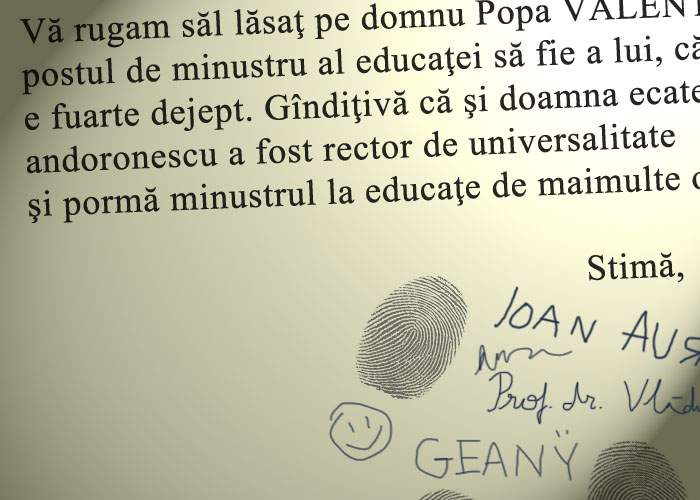 Vă rugam săl lăsaţ pe domnu Popa VALENT
postul de minustru al educaţei să fie a lui, că
e fuarte dejept. Gîndiţivă că şi doamna ecate
andoronescu a fost rector de universalitate
şi pormă minustrul la educaţe de maimulte o
Stimă,
IOAN AUS
Prof. dr. Vlădu
GEANŸ